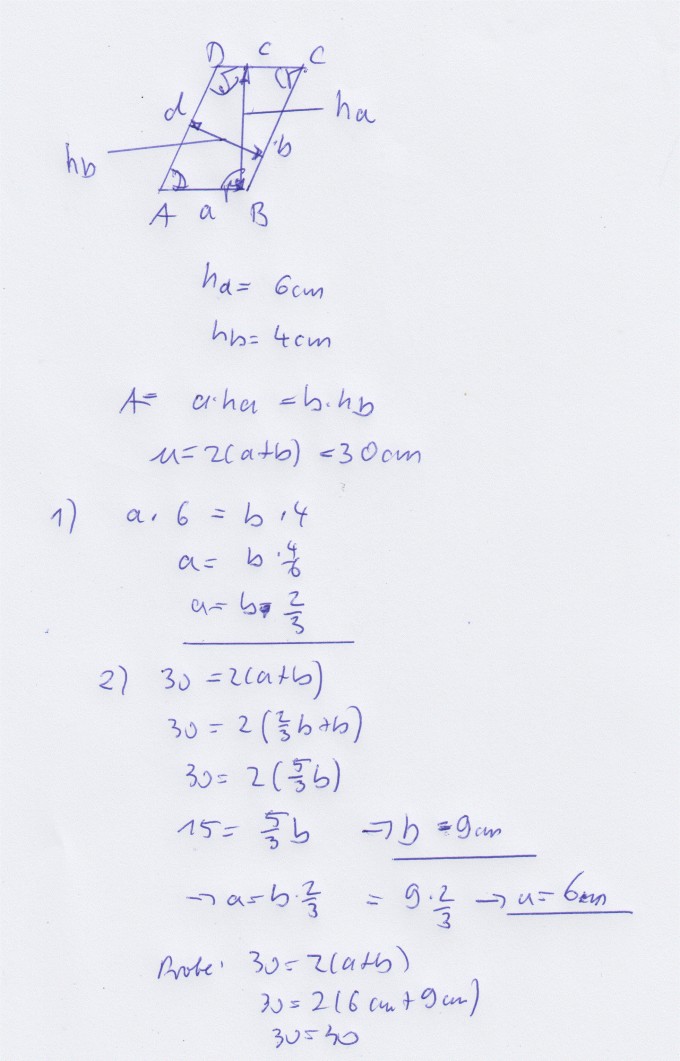 D c C
d
ha
hb
b
A a B
ha = 6cm
hb = 4cm
A = a·ha = b·hb
u = 2(a+b) = 30cm
1) a · 6 = b · 4
a = b · 4/6
a = b · 2/3
2) 30 = 2(a+b)
30 = 2(2/3 b + b)
30 = 2(5/3 b)
15 = 5/3 b → b = 9cm
→ a = b · 2/3 = 9 · 2/3 → a = 6cm
Probe: 30 = 2(a+b)
30 = 2(6cm + 9cm)
30 = 30